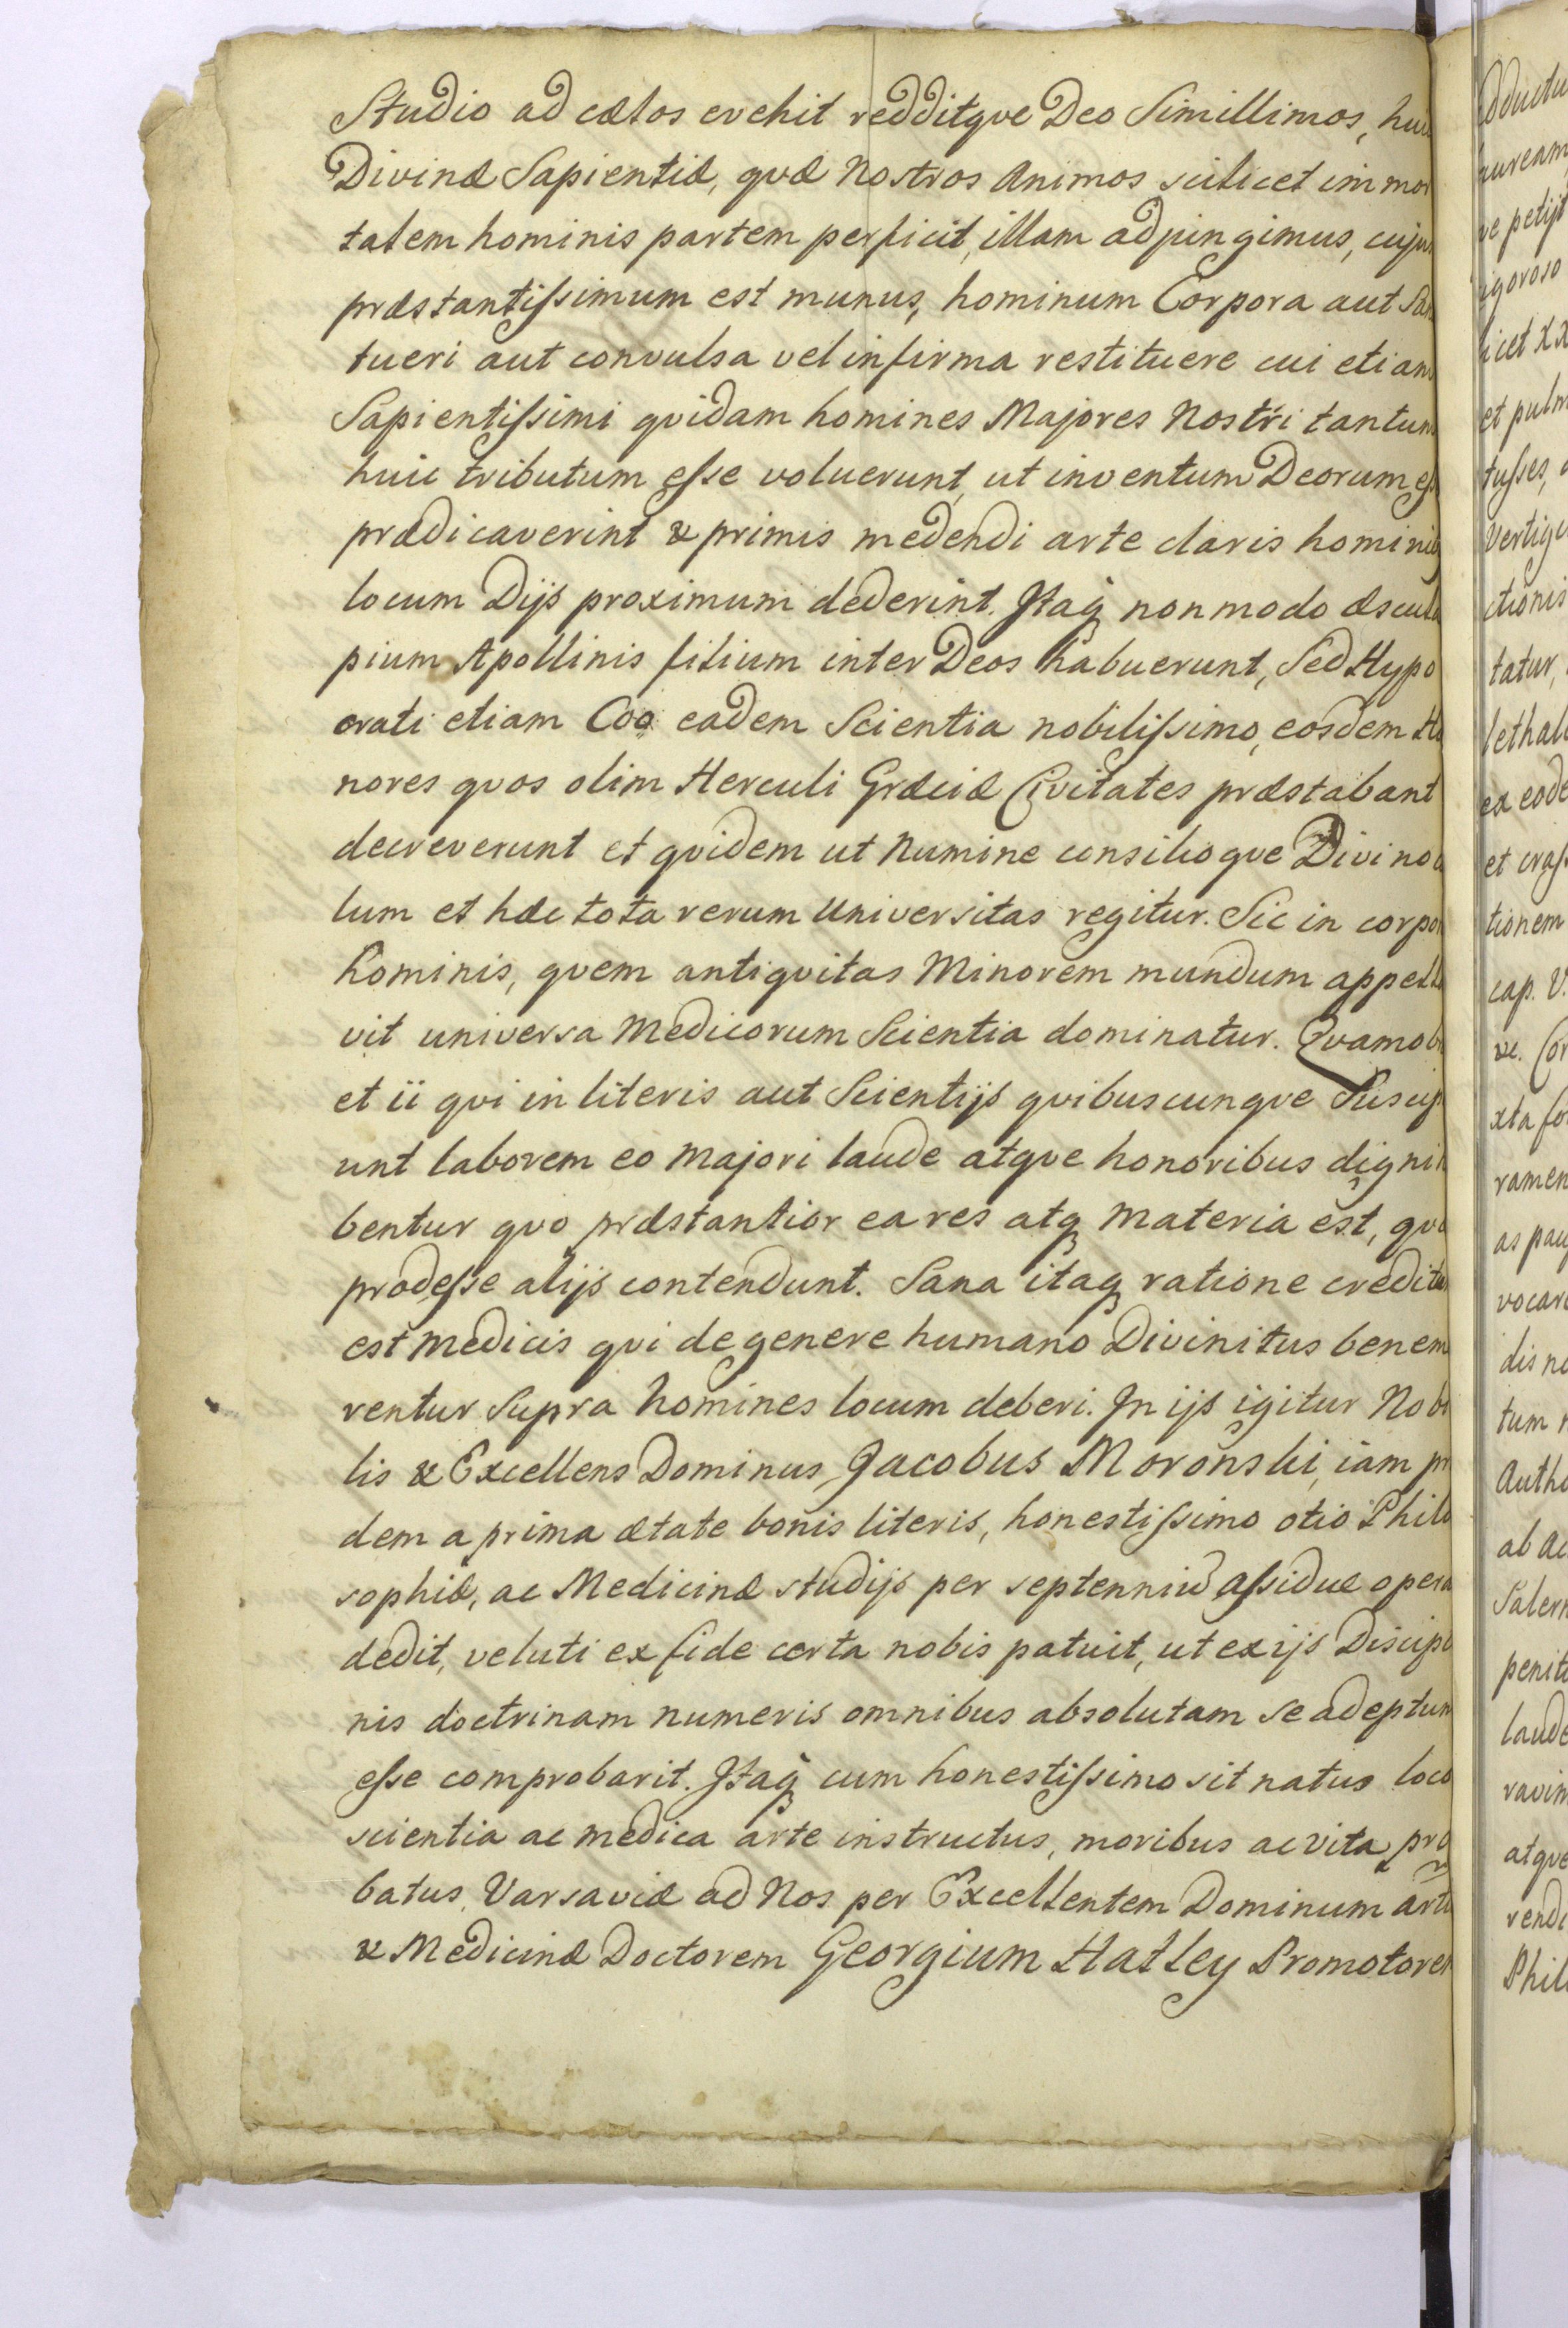 Studio ad cælos evehit redditqve Deo Simillimos, hui
Divinæ Sapientiæ, qvæ Nostros Animos scilicet immor
talem hominis partem perficit, illam adjungimus, cujus
præstantiſsimum est munus, hominum Corpora aut San
tueri aut convulsa vel infirma restituere cui etiam
Sapientiſsimi qvidam homines Majores Nostri tantum
huic tributum eſse voluerunt, ut inventum Deorum eſ
prædicaverint & primis medendi arte claris homini
locum Dijs proximum dederint. Itaq non modo Æscula
pium Apollinis filium inter Deos habuerunt, Sed Hypo
crati etiam Coo eadem Scientia nobiliſsimo, eosdem Ho
nores qvos olim Herculi Græciæ Civitates præstabant
decreverunt et qvidem ut Numine consilioqve Divino c
lum et hæc tota rerum Universitas regitur. Sic in corpor
hominis, qvem antiqvitas Minorem mundum appella
vit universa Medicorum Scientia dominatur. Qvamob
et ii qvi in literis aut Scientijs qvibuscunqve Suscip
unt laborem eo majori laude atqve honoribus digni h
bentur qvo præstantior ea res atq materia est, qva
prodeſse alijs contendunt. Sana itaq ratione creditu
est Medicis qvi de genere humano Divinitus benem
rentur Supra homines locum deberi. In ijs igitur Nobi
lis & Excellens Dominus Jacobus Moroński, iam pr
dem a prima ætate bonis literis, honestiſsimo otio Philo
sophiæ, ac Medicinæ studijs per septenniū aſsidue opera
dedit, veluti ex fide certa nobis patuit, ut ex ijs Discipl
nis doctrinam numeris omnibus absolutam se adeptum
eſse comprobarit. Itaq cum honestiſsimo sit natus loco
scientia ac medica arte instructus, moribus ac vita pro
batus, Varsaviæ ad Nos per Excellentem Dominum Arti
& Medicinæ Doctorem Georgium Hatley Promotorem
dductu
auream
ve petijt
igoroso
licet XX
et pulm
tuſses,
Vertigi
ctionis
tatur,
lethali
ex eode
et craſs
tionem
cap. V.
ve. Cor
xta for
ramen
as pau
vocar
dis no
tum
Autho
ab Ac
Salern
penit
laude
ravim
atqve
rendi
Phil